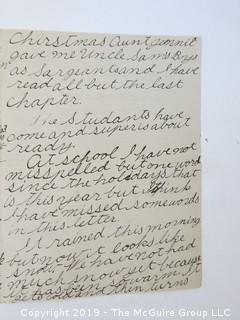 Chirstmas Aunt Connil
gave me Uncle Sam's Boys
as Sargeants and I have
read all but the last
chapter.
The Studants have
come and super is about
ready.
At school I have not
misspelled but one word
since the holodays that
is this year but I think
I have missed some words
in this letter.
It rained this morning
but now it looks like
snow, we have not had
much snow yet because
it has been so warm. It
gets cold and then turns
Copyright 2019 - The McGuire Group LLC